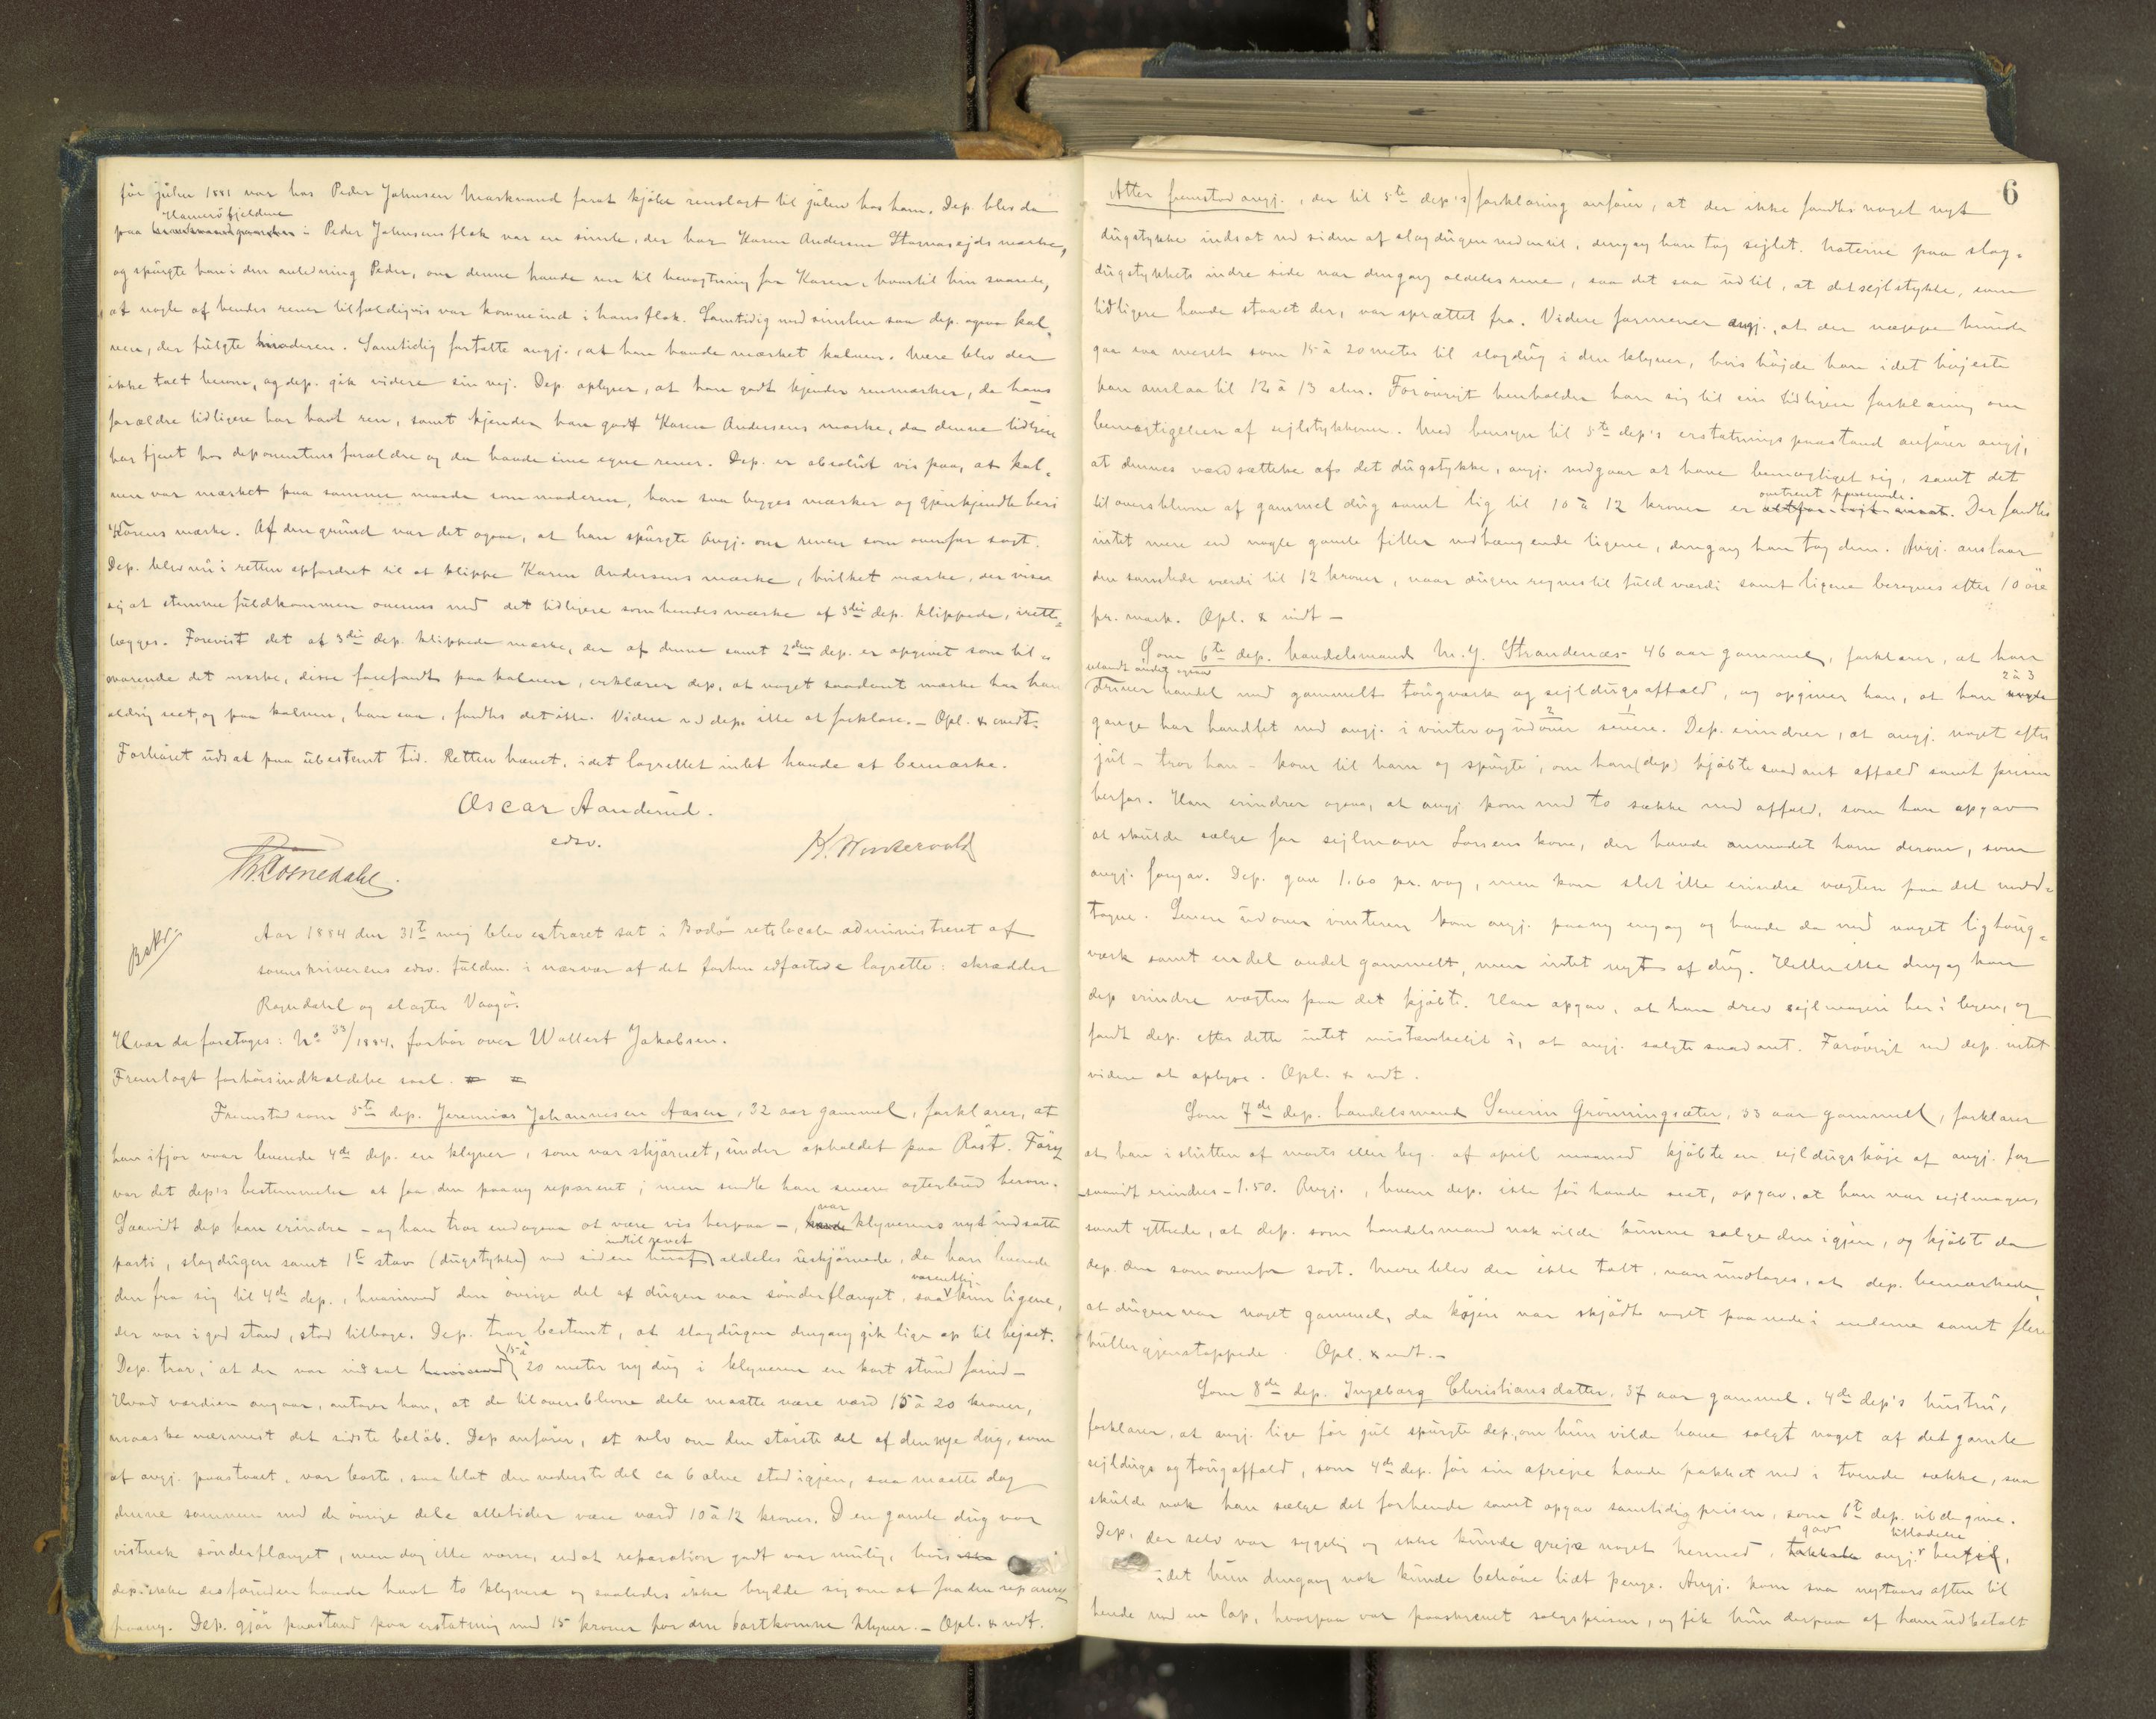 før julen 1881 var hos Peder Johnsen Markvand forat kjøbe renslagt til julen hos ham. Dep. blev da
Hamerøfjeldene
paa i Peder Johnsens flok var en simle, der har Karen Andersen Stornæsejds mærke,
og spurgte han i den anledning Peder, om denne havde ren til bevogtning for Karen, hvortil hin svarede,
at nogle af hendes rener tilfældigvis var komne ind i hans flok. Samtidig med simlen saa dep. ogsaa kal-
ven, der fulgte moderen. Samtidig fortalte angj., at han havde mærket kalven. Mere blev der
ikke talt herom, og dep. gik videre sin vej. Dep. oplyser, at han godt kjender renmærker, da hans
forældre tidligere har havt ren, samt kjender han godt Karen Andersens mærke, da denne tidligere
har tjent hos deponentens forældre og da havde sine egne rener. Dep. er absolut vis paa, at kal-
ven var mærket paa samme maade som moderen, han saa begges mærker og gjenkjendte heri
Karens mærke. Af den grund var det ogsaa, at han spurgte angj. om renen som ovenfor sagt.
Dep. blev nu i retten opfordret til at klippe Karen Andersens mærke, hvilket mærke, der viser
sig at stemme fuldkommen overens med det tidligere som hendes mærke af 3die dep. klippede, irette-
lægges. Forevist det af 3die dep. klippede mærke, der af denne samt 2den dep. er opgivet som til-
svarende det mærke, disse forefandt paa kalven, erklærer dep., at noget saadant mærke har han
aldrig seet, og paa kalven, han saa, fandtes det ikke. Videre ved dep. ikke at forklare. – Opl. & vedt.
Forhøret udsat paa ubestemt tid. Retten hævet, idet lagrettet intet havde at bemærke.
Oscar Aanderud.
edsv.
K. Wintervold
Aar 1884 den 31te maj blev extraret sat i Bodø retslocale administreret af
sorenskriverens edsv. fuldm. i nærvær af det forhen edfæstede lagrette: skrædder
Rogndahl og slagter Vaagø.
Hvor da foretoges: No 33/1884, forhør over Wallert Jakobsen.
Fremlagt forhørsindkaldelse saal. = =
Fremstod som 5te dep. Jeremias Johannesen Aasen, 32 aar gammel, forklarer, at
han ifjor vaar leverede 4de dep. en klyver, som var skjørnet, under opholdet paa Røst. Først
var det dep's bestemmelse at faa den paany repareret; men sendte han senere agterbud herom.
var
Saavidt dep kan erindre – og han tror endogsaa at være vis herpaa –, klyverens nyt indsatte
indtil revet
parti, slagdugen samt 1te stav (dugstykke) ved siden heraf aldeles uskjørnede, da han leverede
væsentlig
den fra sig til 4de dep., hvorimod den øvrige del af dugen var sønderflænget, saa kun ligene,
der var i god stand, stod tilbage. Dep. tror bestemt, at slagdugen dengang gik lige op til hejset.
15 à
Dep. tror, at der var indsat 20 meter ny dug i klyveren en kort stund forud –
Hvad værdien angaar, antager han, at de tiloversblevne dele maatte være værd 15 à 20 kroner,
maaske nærmest det sidste beløb. Dep anfører, at selv om den største del af den nye dug, som
af angj. paastaaet, var borte, saa blot den nederste del ca 6 alne stod igjen, saa maatte dog
denne sammen med de øvrige dele alletider være værd 10 à 12 kroner. Den gamle dug var
vistnok sønderflænget, men dog ikke værre, end at reparation godt var mulig, hvis
dep. ikke desforuden havde havt to klyvere og saaledes ikke brydde sig om at faa den repareret
paany. Dep. gjør paastand paa erstatning med 15 kroner for den bortkomne klyver. – Opl. & vedt.
6
Atter fremstod angj., der til 5te dep's forklaring anfører, at der ikke fandtes noget nyt
dugstykke indsat ved siden af slagdugen nedentil, dengang han tog sejlet. Naterne paa slag-
dugstykkets indre side var dengang aldeles rene, saa det saa ud til, at det sejlstykke, som
tidligere havde staaet der, var sprættet fra. Videre formener angj., at der næppe kunde
gaa saa meget som 15 à 20 meter til slagdug i den klyver, hvis højde han i det højeste
kan anslaa til 12 à 13 alen. Forøvrigt henholder han sig til sin tidligere forklaring om
bemægtigelsen af sejlstykkerne. Med hensyn til 5te dep's erstatningspaastand anfører angj.,
at dennes værdsættelse af det dugstykke, angj. vedgaar at have bemægtiget sig, samt det
omtrent passende.
tiloversblevne af gammel dug samt lig til 10 à 12 kroner er Der fandtes
intet mere end nogle gamle filler vedhængende ligene, dengang han tog dem. Angj. anslaar
den samlede værdi til 12 kroner, naar dugen regnes til fuld værdi samt ligene beregnes efter 10 øre
pr. mark. Opl. & vedt –
Som 6te dep. handelsmand M. J. Strandenæs 46 aar gammel, forklarer, at han
blandt andet ogsaa
2 à 3
driver handel med gammelt tougværk og sejldugsaffald, og opgiver han, at han
gange har handlet med angj. i vinter og udover senere. Dep. erindrer, at angj. noget efter
jul – tror han – kom til ham og spurgte, om han (dep) kjøbte saadant affald samt prisen
herfor. Han erindrer ogsaa, at angj kom med to sække med affald, som han opgav
at skulde sælge for sejlmager Larsens kone, der havde anmodet ham derom, som
angj. foregav. Dep. gav 1.60 pr. vog, men kan slet ikke erindre vægten paa det mod-
tagne. Senere udover vinteren kom angj. paany engang og havde da med noget ligtoug-
værk samt endel andet gammelt, men intet nyt af dug. Heller ikke dengang kan
dep erindre vægten paa det kjøbte. Han opgav, at han drev sejlmageri her i byen, og
fandt dep. efter dette intet mistænkeligt i, at angj. solgte saadant. Forøvrigt ved dep. intet
videre at oplyse. Opl. & vedt.
Som 7de dep. handelsmand Severin Grønningsæter, 33 aar gammel, forklarer
at han i slutten af marts eller beg. af april maaned kjøbte en sejldugskøje af angj. for
– saavidt erindres – 1.50. Angj., hvem dep. ikke før havde seet, opgav, at han var sejlmager,
samt yttrede, at dep. som handelsmand nok vilde kunne sælge den igjen, og kjøbte da
dep. den som ovenfor sagt. Mere blev der ikke talt, naar undtages, at dep. bemærkede,
at dugen var noget gammel, da køjen var skjødt noget paa nede i enderne samt flere
huller gjenstoppede. Opl. & vedt. –
Som 8de dep. Ingeborg Christiansdatter, 37 aar gammel, 4de dep's hustru,
forklarer, at angj. lige før jul spurgte dep., om hun vilde have solgt noget af det gamle
sejldugs og tougaffald, som 4de dep. før sin afrejse havde pakket ned i tvende sække, saa
skulde nok han sælge det for hende samt opgav samtidig prisen, som 6te dep. vilde give.
gav tilladelse
Dep., der selv var sygelig og ikke kunde gribe noget hermed, angj. hertil,
idet hun dengang nok kunde behøve lidt penge. Angj. kom saa nytaarsaften til
hende med en lap, hvorpaa var paaskrevet salgsprisen, og fik hun derpaa af ham udbetalt